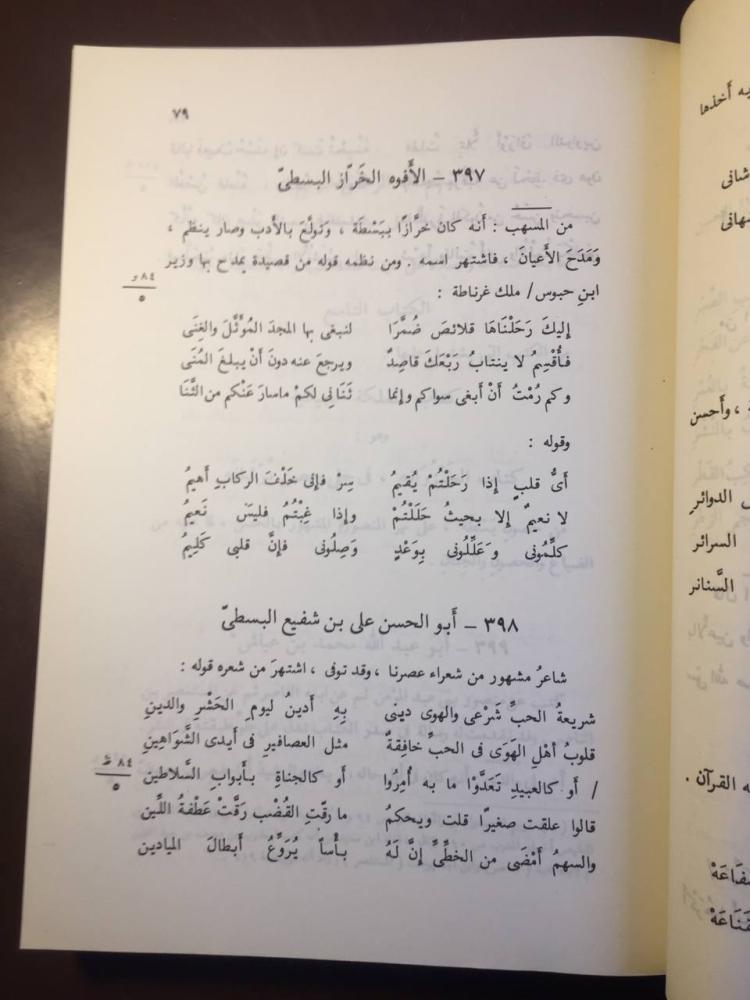 ٧٩
٣٩٧ – الأَفوه الخَرّاز البسطىّ
من المسهب : أَنه كان خرَّازًا ببَسْطَة ، وَتولَّعَ بالأَدب وصار ينظم ،
وَمَدَحَ الأَعيانَ ، فاشتهر اسمه . ومن نظمه قوله من قصيدة يمدح بها وزير
٨٤ و
٥
ابنِ حبوس / ملك غرناطة :
إِليكَ رَحَلْنَاهَا قلائصَ ضُمَّرًا لنبغى بها المجدَ المُوَثَّلَ والغِنَى
فأُقْسِمُ لا ينتابُ رَبْعَكَ قاصِدٌ ويرجعَ عنه دونَ أَنْ يبلغَ المُنَى
وكم رُمْتُ أَنْ أَبغى سواكم وإِنما ثَنَانِى لكمْ ماسارَ عَنْكم من الثَّنَا
وقوله :
أَىُّ قلبٍ إِذا رَحَلْتُمْ يُقيمُ سِرْ فإِنى خَلْفَ الركابِ أَهيمُ
لا نعيمٌ إِلا بحيثُ حَلَلْتُمْ وإِذا غِبْتُمُ فليسَ نَعيمُ
كلِّمُونى وَعَلِّلُونى بِوَعْدٍ وَصِلُونى فإِنَّ قلبى كَلِيمُ
٣٩٨ – أَبو الحسن على بن شفيع البسطىّ
شاعرٌ مشهور من شعراء عصرنا ، وقد توفى ، اشتهرَ من شعره قوله :
شريعةُ الحبِّ شَرْعى والهوى دينى بِهِ أَدينُ ليومِ الحَشْرِ والدينِ
قلوبُ أَهلِ الهَوَى فى الحبِّ خافِقةٌ مثل العصافيرِ فى أَيدى الشَّوَاهِينِ
٨٤ ظ
٥
/ أَو كالعبيدِ تَعَدَّوْا ما به أُمِرُوا أَو كالجناةِ بأَبوابِ السَّلاطين
قالوا علقت صغيرًا قلت ويحكمُ ما رقّتِ القُضْب رَقَّتْ عَطْفةُ اللِّين
والسهمُ أَمْضَى من الخطِّىِّ إِنَّ لَهُ بأْساً يُرَوِّعُ أَبطالَ الميادين
يه أَخذها
وأَحسن
الدوائرِ
السرائر
السَّنانر
ه القرآن .